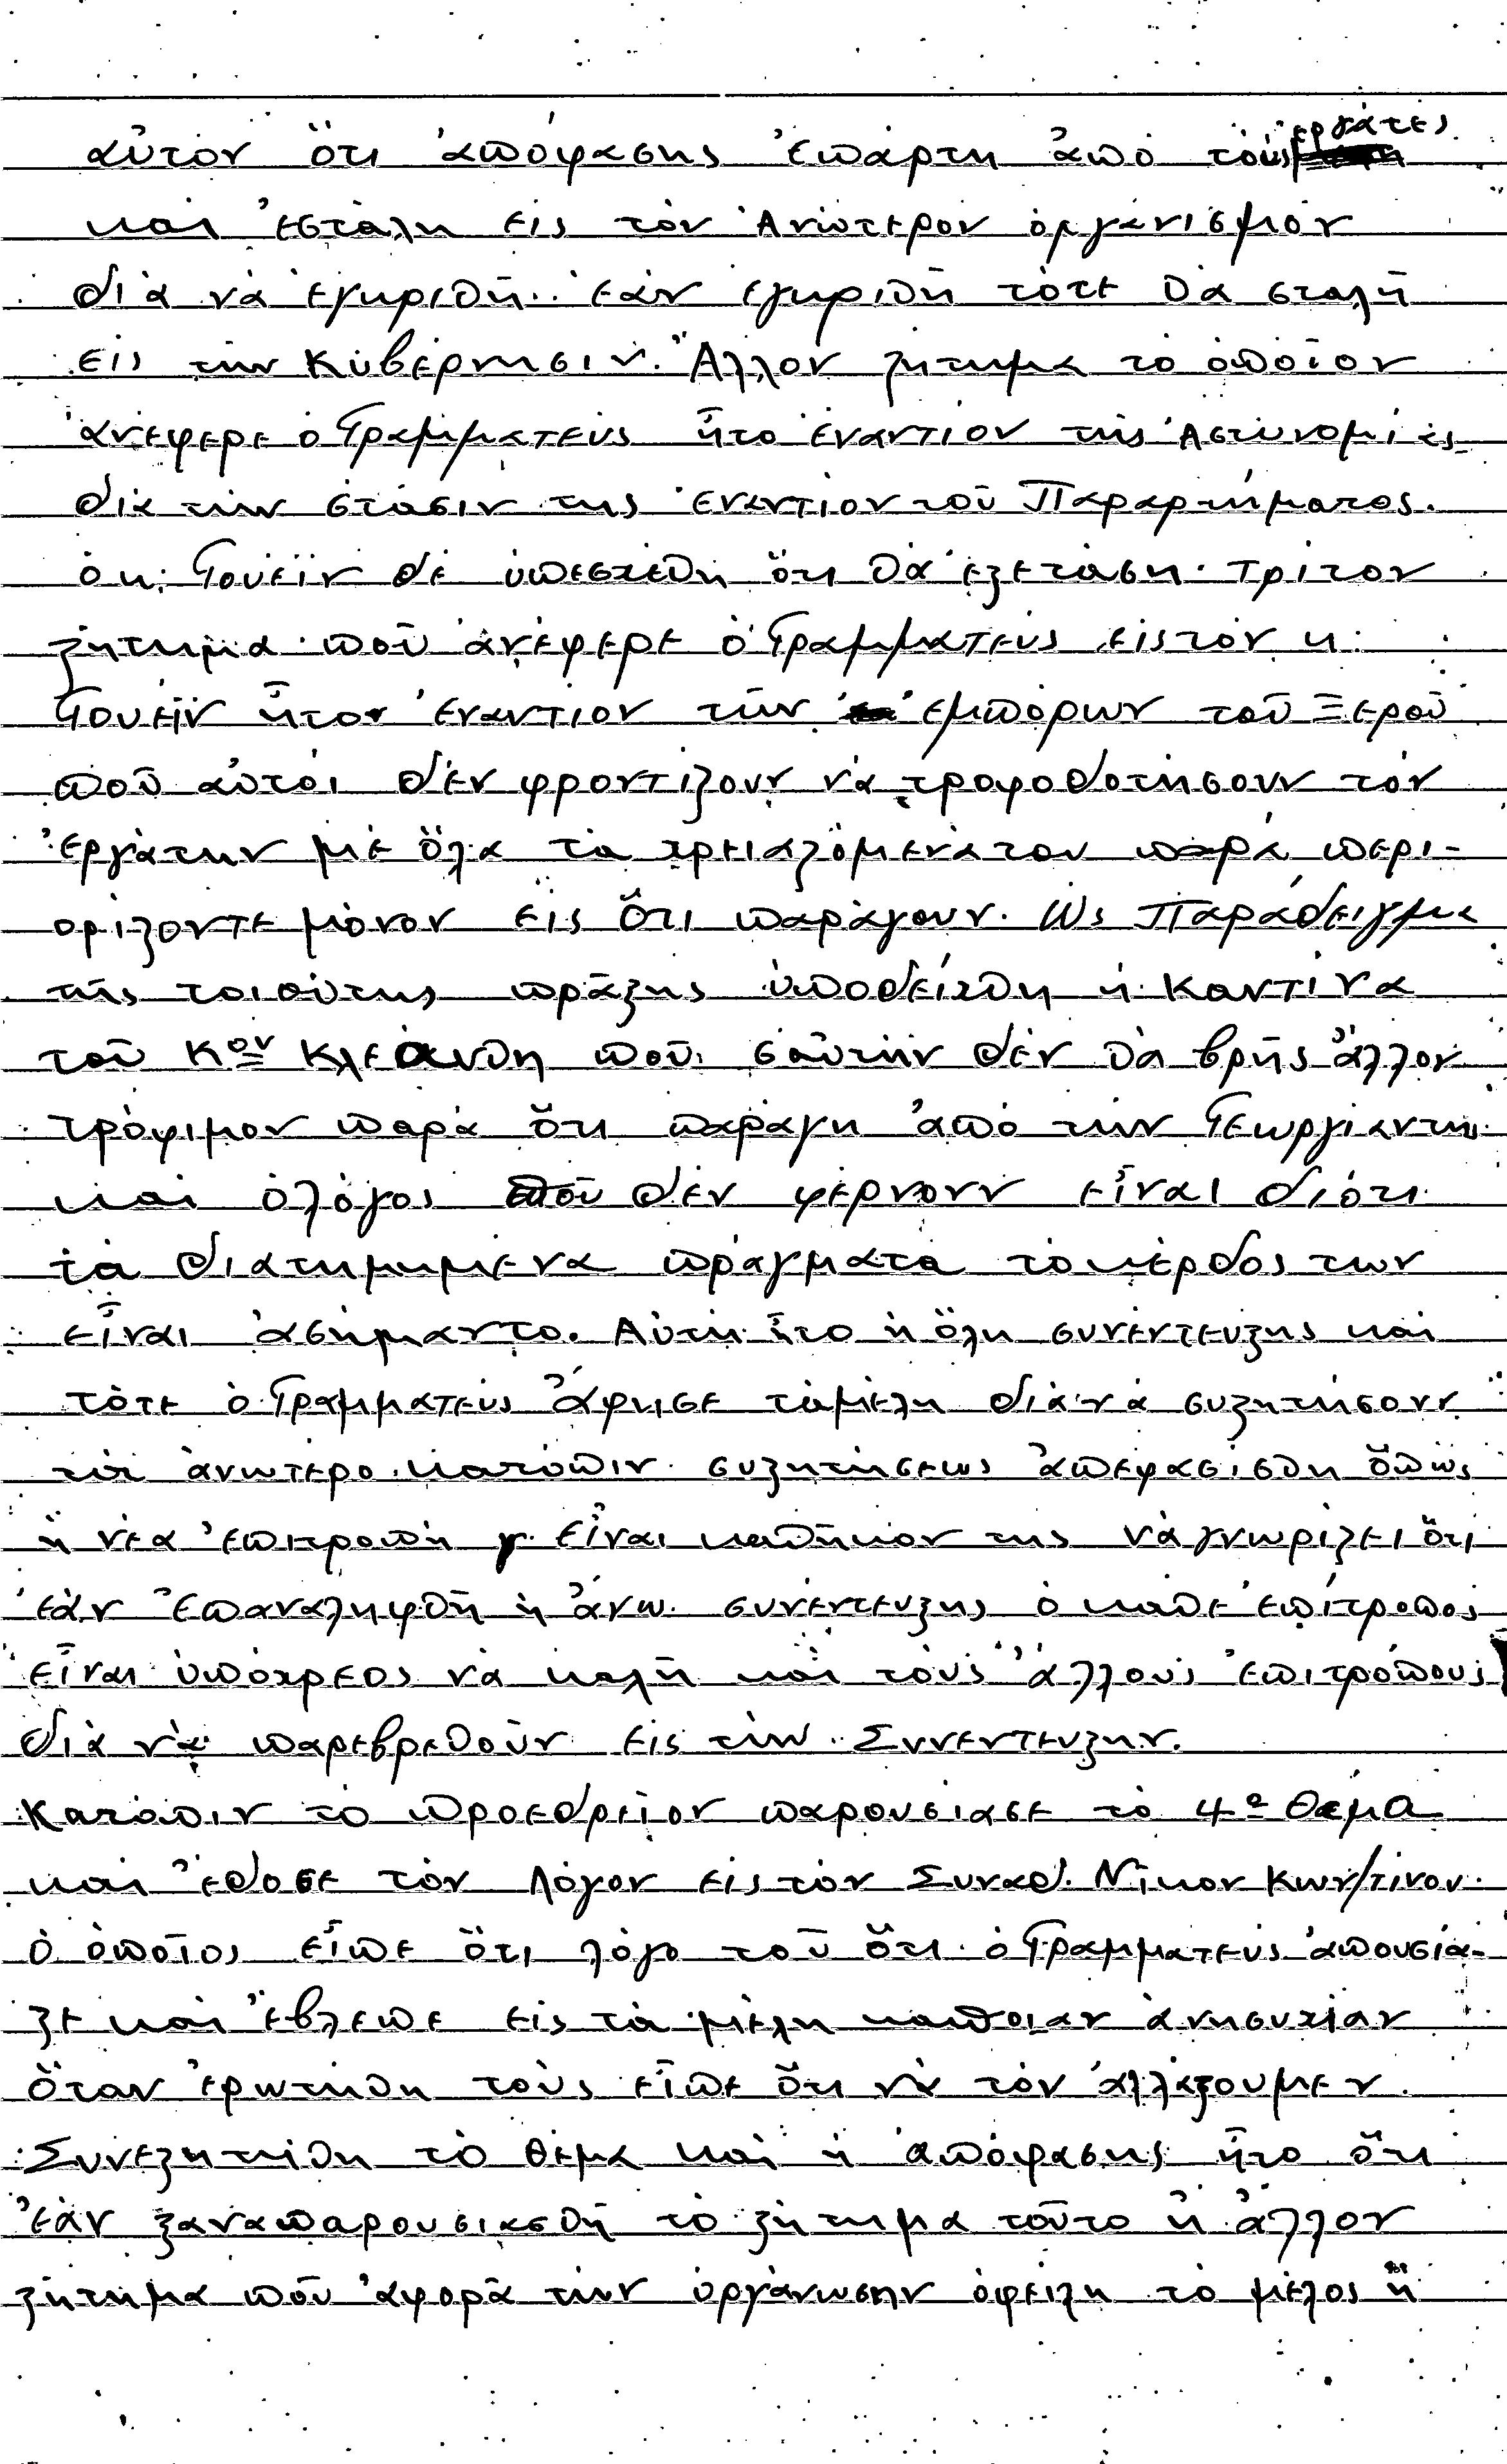 αὐτὸν ὅτι ἀπόφασης ἐπάρτη ἀπὸ τοὺς ἐργάτες
καὶ ἐστάλη εἰς τὸν Ἀνώτερον ὀργανισμὸν
διὰ νὰ ἐγκριθῆ. ἐὰν ἐγκριθῆ τότε θὰ σταλῆ
εἰς τὴν Κυβέρνησιν. Ἄλλον ζήτημα τὸ ὁποῖον
ἀνέφερε ὁ Γραμματεὺς ἦτο ἐναντίον τῆς Ἀστυνομίας
διὰ τὴν στάσιν της ἐναντίον τοῦ Παραρτήματος.
ὁ κ: Γουέϊν δὲ ὑπεσχέθη ὅτι θὰ ἐξετάση. Τρίτον
ζήτημα ποῦ ἀνέφερε ὁ Γραμματεὺς εἰς τὸν κ:
Γουέϊν ἦτον ἐναντίον τῶν ἐμπόρων τοῦ Ξεροῦ
ποῦ αὐτοὶ δὲν φροντίζουν νὰ τροφοδοτήσουν τὸν
ἐργάτην μὲ ὅλα τὰ χρειαζόμενά του παρὰ περι-
ορίζοντε μόνον εἰς ὅτι παράγουν. Ὡς Παράδειγμα
τῆς τοιαύτης πρᾶξης ὑποδείχθη ἡ Καντίνα
τοῦ Κου Κλεάνθη ποῦ σαὐτὴν δὲν θὰ βρῆς ἄλλον
τρόφιμον παρὰ ὅτι παράγη ἀπὸ τὴν Γεωργίαν της
καὶ ὁ λόγος ποῦ δὲν φέρνουν εἶναι διότι
τὰ διατημημένα πράγματα τὸ κέρδος των
εἶναι ἀσήμαντο. Αὐτὴ ἦτο ἡ ὅλη συνέντευξης καὶ
τότε ὁ Γραμματεὺς ἄφησε τὰ μέλη διὰ νὰ συζητήσουν
τὰ ἀνώτερο. κατόπιν συζητήσεως ἀπεφασίσθη ὅπως
ἡ νέα ἐπιτροπὴ εἶναι καθῆκον της νὰ γνωρίζει ὅτι
ἐὰν ἐπαναληφθῆ ἡ ἄνω συνέντευξης ὁ κάθε ἐπίτροπος
εἶναι ὑπόχρεος νὰ καλῆ καὶ τοὺς ἄλλους ἐπιτρόπους
διὰ νὰ παρεβρεθοῦν εἰς τὴν Συνέντευξην.
Κατόπιν τὸ προεδρεῖον παρουσίασε τὸ 4ο θέμα
καὶ ἔδοσε τὸν λόγον εἰς τὸν Συναδ. Νῖκον Κων/τίνου
ὁ ὁποῖος εἶπε ὅτι λόγο τοῦ ὅτι ὁ Γραμματεὺς ἀπουσία-
ζε καὶ ἔβλεπε εἰς τὰ μέλη κάποιαν ἀνησυχίαν
ὅταν ἐρωτήθη τοὺς εἶπε ὅτι νὰ τὸν ἀλλάξουμεν.
Συνεζητήθη τὸ θέμα καὶ ἡ ἀπόφασης ἦτο ὅτι
ἐὰν ξαναπαρουσιασθῆ τὸ ζήτημα τοῦτο ἢ ἄλλον
ζήτημα ποῦ ἀφορᾶ τὴν ὀργάνωσην ὀφείλη τὸ μέλος ἢ